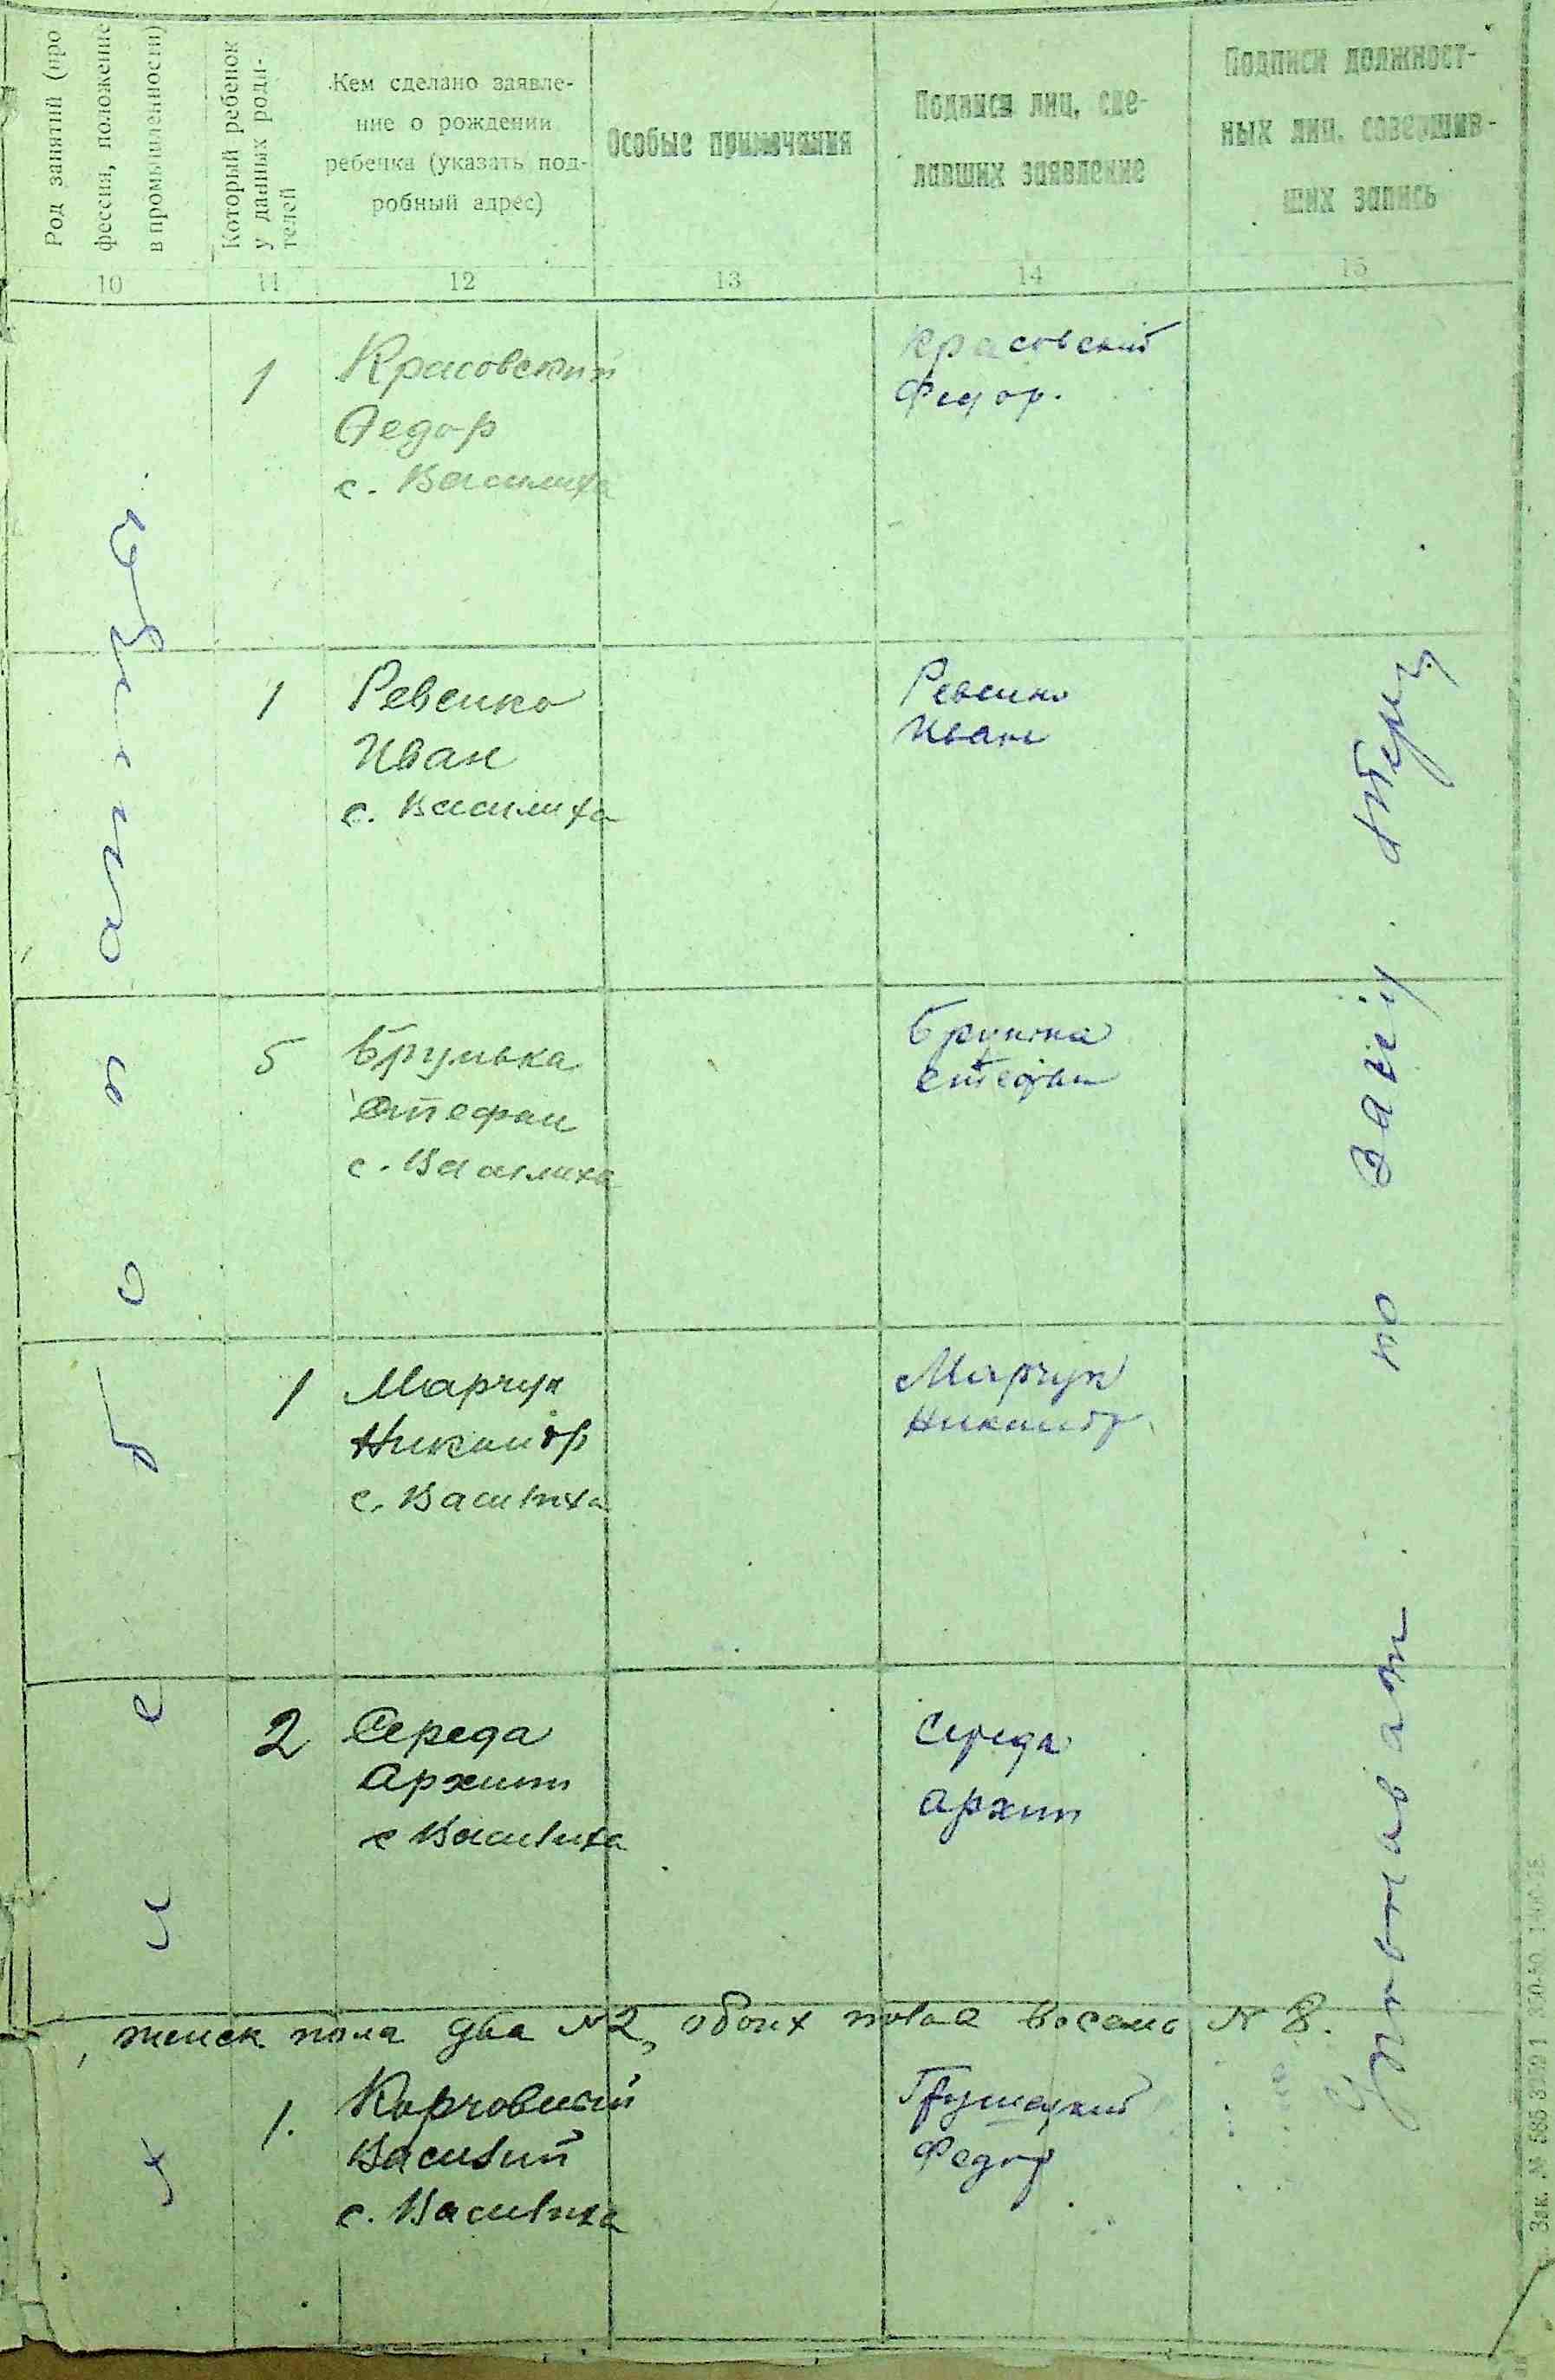 Род занятий (про
фессия, положение
в промышленности)
Который ребенок
у данных роди-
телей
Кем сделано заявле-
ние о рождении
ребенка (указать под-
робный адрес)
Особые примечания
Подписи лиц, сде-
лавших заявление
Подписи должност-
ных лиц, совершив-
ших запись
10
11
12
13
14
15
1
Красовский
Федор
с. Василиха
Красовский
Федор.
1
Ревенко
Иван
с. Василиха
Ревенко
Иван
5
Брунька
Стефан
с. Василиха
Брунька
Стефан
1
Марчук
Никанор
с. Василиха
Марчук
Никанор
2
Середа
Архип
с Василиха
Середа
Архип
женск пола два №2, обоих пола восемь № 8.
1.
Корчовный
Василий
с. Василиха
Грушецкий
Федор
Зак. №